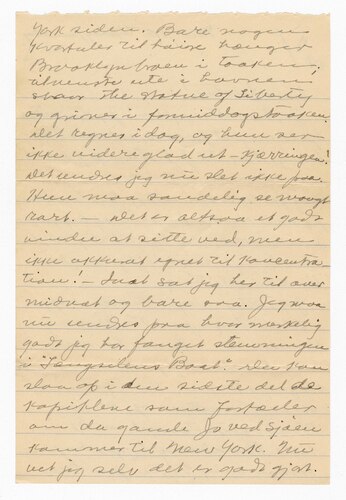 York siden. Bare nogen
kvartaler til høire hænger
Brooklynbroen i taaken;
tilvenstre ute i havnen
staar the Statue of Liberty
og griner i formiddagstaaken.
Det regner idag, og hun ser
ikke videre glad ut – kjærringen!
Det undres jeg mig slet ikke paa.
Hun maa sandelig se meget
rart. – Det er altsaa et godt
vindu at sitte ved, men
ikke akkurat egnet til koncentra-
tion! – Inat sat jeg her til over
midnat og bare saa. Jeg maa
mig undres paa hvor merkelig
godt jeg har fanget stemningen
i "Længselens Baat." Du kan
slaa op i den sidste del de
kapitlene som fortæller
om da gamle Jo ved Sjøen
kommer til New York. Nu
vet jeg selv det er godt gjort.